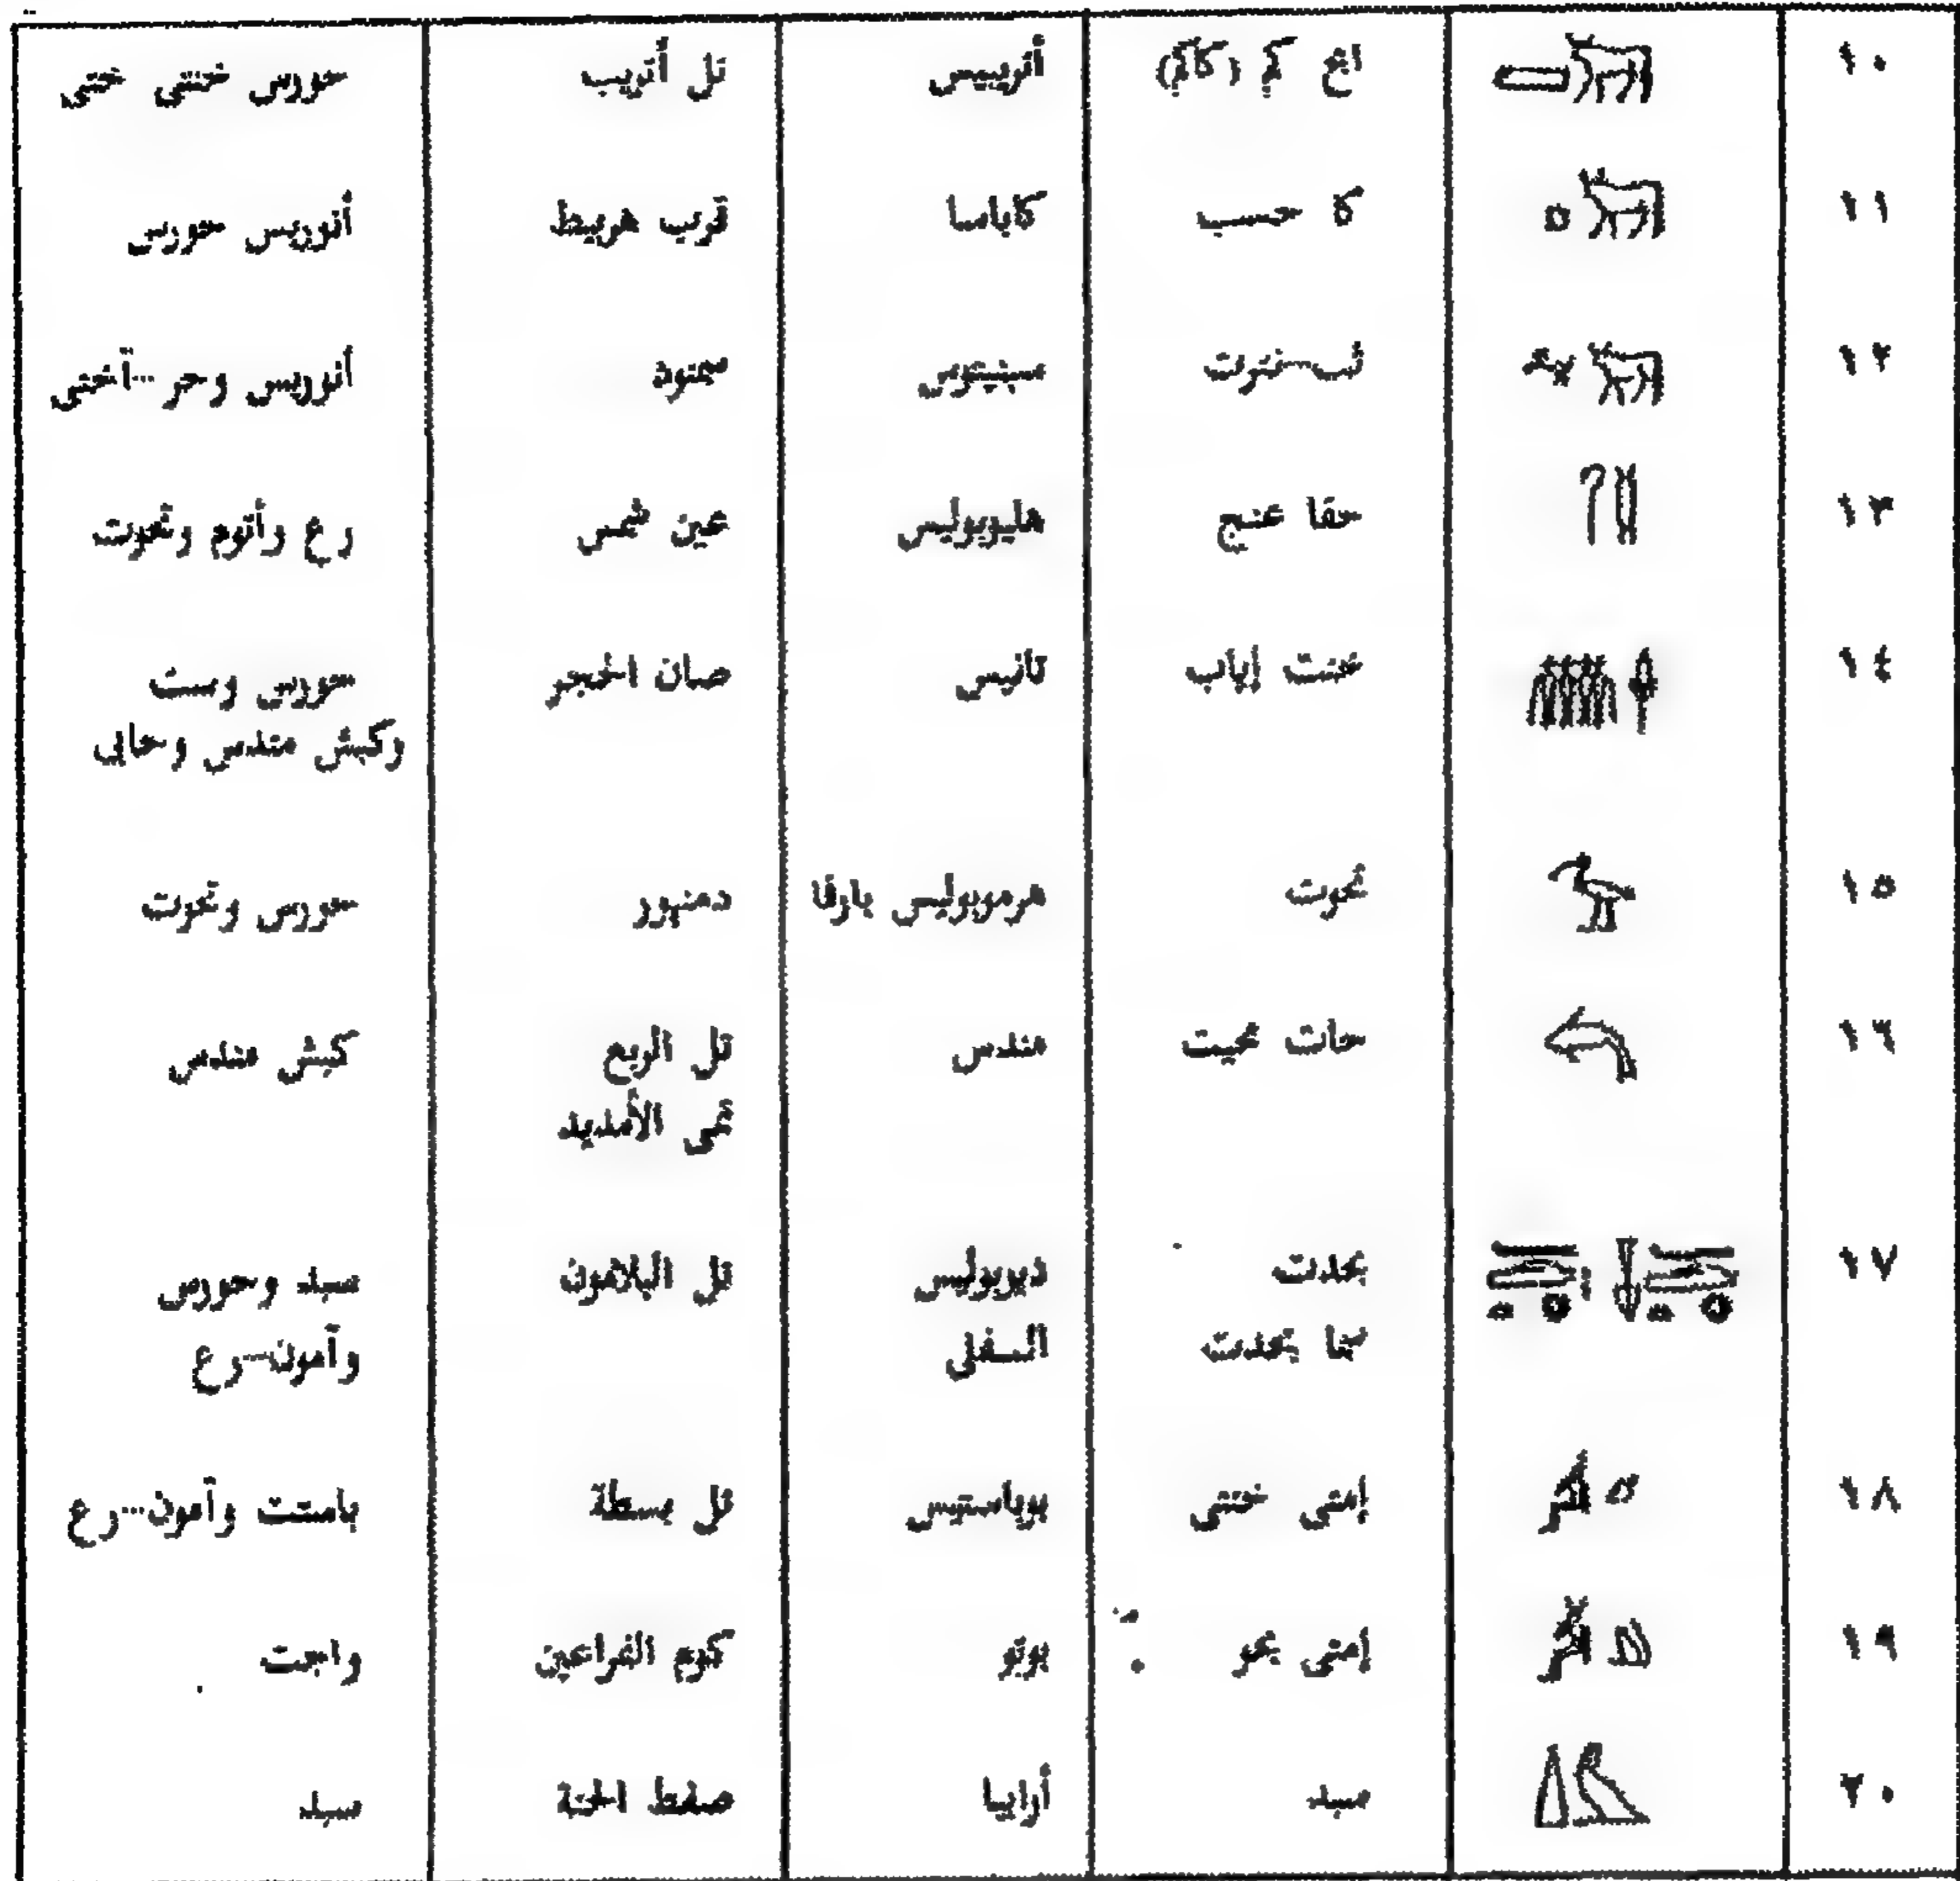 ١٠ اع كم (كاكم) أتريبيس تل أتريب حورس خنتى ختى
١١ كا حسب كاباسا قرب هربيط أنوريس حورس
١٢ ثب-نترت سبنيتوس سمنود أنوريس وحر-آختى
١٣ حقا عنج هليوبوليس عين شمس رع وأتوم وتحوت
١٤ خنت إياب تانيس صان الحجر حورس وست
وكبش مندس وحابى
١٥ تحوت هرموبوليس بارفا دمنهور حورس وتحوت
١٦ حات محيت مندس تل الربع كبش مندس
تمى الأمديد
١٧ بحدت ديوبوليس تل البلامون سبد وحورس
سما بحدت السفلى وآمون-رع
١٨ إمتى خنتى بوباستيس تل بسطة باستت وآمون-رع
١٩ إمتى محو بوتو كوم الفراعين واجت
٢٠ سبد أرابيا صفط الحنة سبد